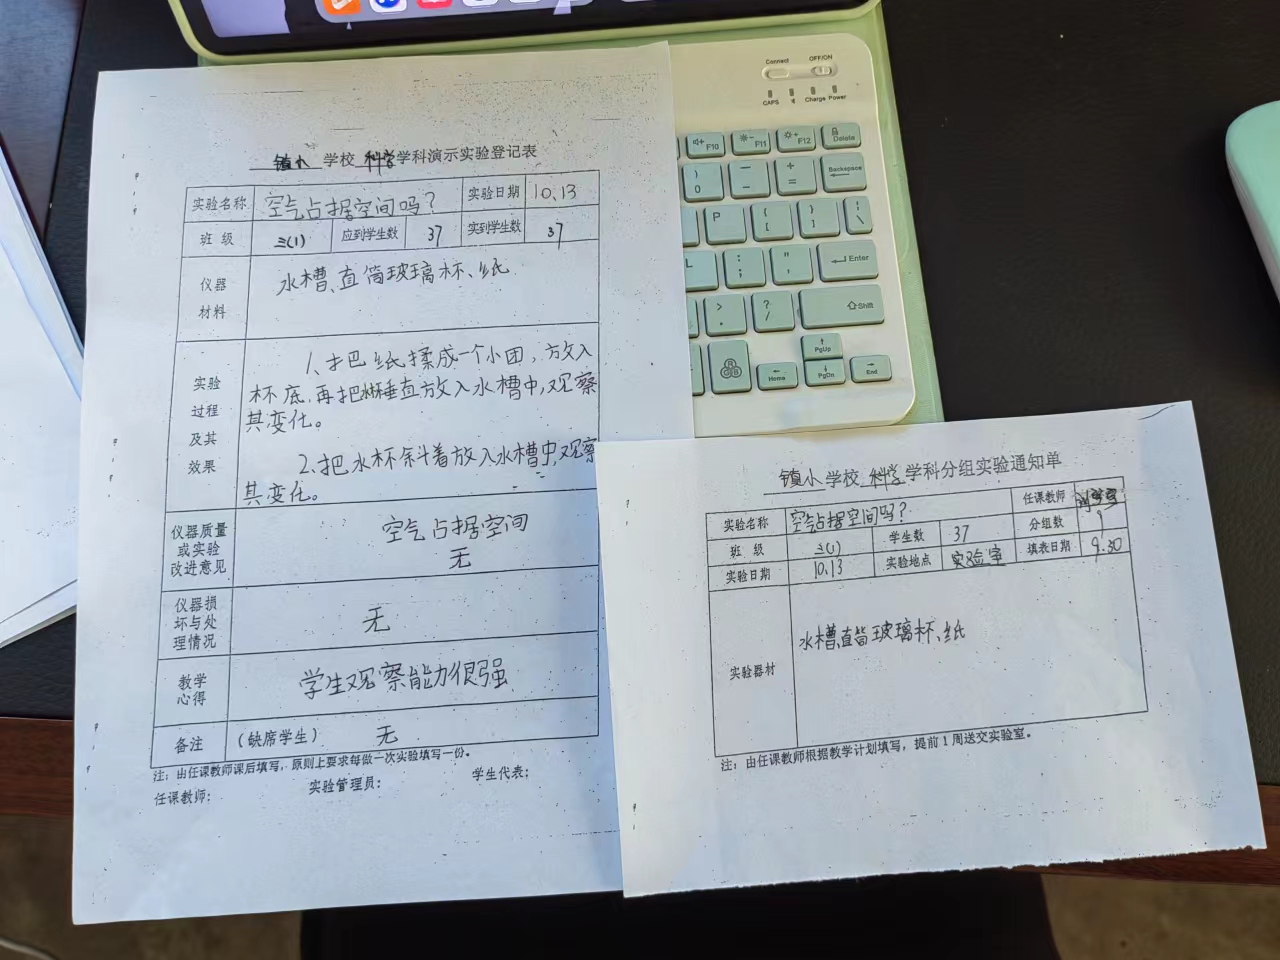 Connect
OFF/ON
CAPS
Charge
Power
F10
F11
F12
Delete
)
0
_
-
+
=
Backspace
P
{
[
}
]
|
\
L
:
;
"
'
Enter
>
.
?
/
Shift
Home
PgUp
PgDn
End
镇小 学校 科学 学科演示实验登记表
实验名称 空气占据空间吗? 实验日期 10.13
班 级 三(1) 应到学生数 37 实到学生数 37
仪器
材料
水槽、直筒玻璃杯、纸
实验
过程
及其
效果
1、把纸揉成一个小团,放入
杯底,再把水杯垂直放入水槽中,观察
其变化。
2、把水杯斜着放入水槽中,观察
其变化。
仪器质量
或实验
改进意见
空气占据空间
无
仪器损
坏与处
理情况
无
教学
心得
学生观察能力很强
备注 (缺席学生) 无
注:由任课教师课后填写,原则上要求每做一次实验填写一份。
任课教师: 实验管理员: 学生代表:
镇小 学校 科学 学科分组实验通知单
实验名称 空气占据空间吗? 任课教师
班 级 三(1) 学生数 37 分组数
实验日期 10.13 实验地点 实验室 填表日期 9.30
实验器材 水槽、直筒玻璃杯、纸
注:由任课教师根据教学计划填写,提前1周送交实验室。